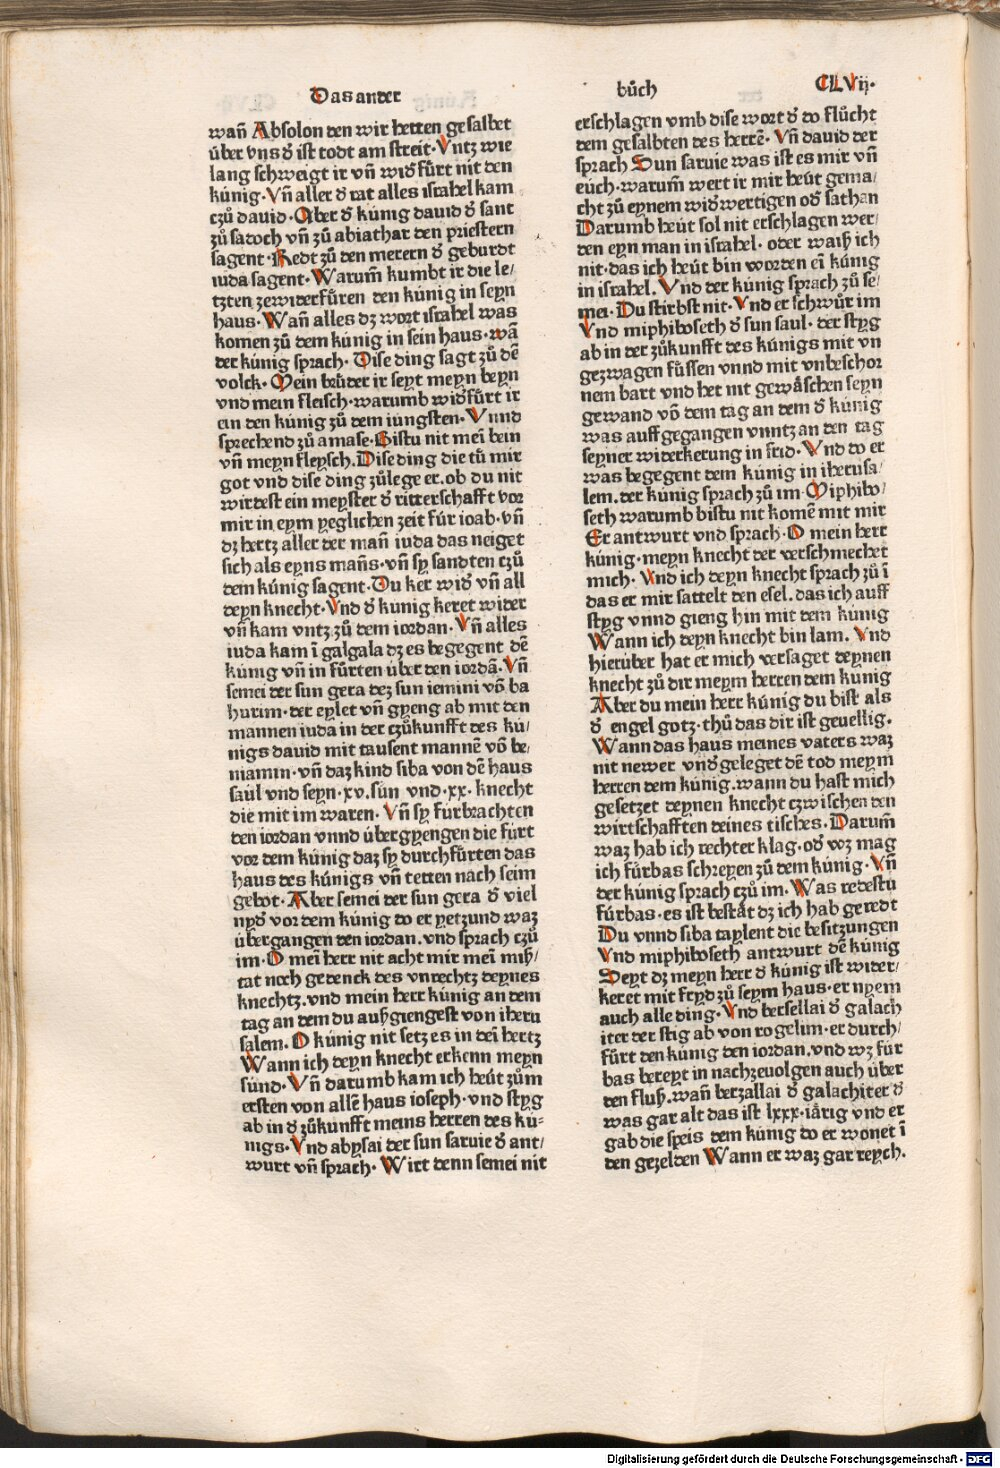 Das ander
bůch
CLVij.
wan̄ Absolon den wir hetten gesalbet
über vns d̓ ist todt am streit. Vntz wie
lang schweigt ir vn̄ wid̓fürt nit den
künig. Vn̄ aller d̓ rat alles israhel kam
czů dauid. Aber d̓ künig dauid d̓ sant
zů sadoch vn̄ zů abiathar den priestern
sagent. Redt zů den merern d̓ geburdt
iuda sagent. Warum̄ kumbt ir die le/
tzten zewiderfüren den künig in seyn
haus. Wan̄ alles dz wort israhel was
komen zů dem künig in sein haus. wā
der künig sprach. Dise ding sagt zů dē
volck. Mein brůder ir seyt meyn beyn
vnd mein fleisch. warumb wid̓fürt ir
ein den künig zů dem iungsten. Vnnd
sprechend zů amase. Bistu nit mei bein
vn̄ meyn fleysch. Dise ding die tů mir
got vnd dise ding zůlege er. ob du nit
wirdest ein meyster d̓ ritterschafft vor
mir in eym yeglichen zeit für ioab. vn̄
dz hertz aller der man̄ iuda das neiget
sich als eyns man̄s. vn̄ sy sandten czů
dem künig sagent. Du ker wid̓ vn̄ all
deyn knecht. Vnd d̓ kunig keret wider
vn̄ kam vntz zů dem iordan. Vn̄ alles
iuda kam ī galgala dz es begegent dē
künig vn̄ in fürten über den iordā. Vn̄
semei der sun gera dez sun iemini vō ba
hurim. der eylet vn̄ gyeng ab mit den
mannen iuda in der czůkunfft des kü/
nigs dauid mit tausent mannē vō be/
niamin. vn̄ daz kind siba von dē haus
saul vnd seyn. xv. sün vnd. xx. knecht
die mit im waren. Vn̄ sy fürbrachten
den iordan vnnd übergyengen die fürt
vor dem künig daz sy durchfürten das
haus des künigs vn̄ tetten nach seim
gebot. Aber semei der sun gera d̓ viel
nyd̓ vor dem künig do er yetzund waz
übergangen den iordan. vnd sprach czů
im. O mei herr nit acht mir mei miß/
tat noch gedenck des vnrechtz deynes
knechtz. vnd mein herr künig an dem
tag an dem du außgiengest von iheru
salem. O künig nit setz es in dei hertz
Wann ich deyn knecht erkenn meyn
sünd. Vn̄ darumb kam ich heüt zům
ersten von allē haus ioseph. vnd styg
ab in d̓ zůkunfft meins herren des kü=
nigs. Vnd abysai der sun saruie d̓ ant/
wurt vn̄ sprach. Wirt denn semei nit
erschlagen vmb dise wort d̓ do flůcht
dem gesalbten des herrē. Vn̄ dauid der
sprach Sun saruie was ist es mir vn̄
eüch. warum̄ wert ir mir heüt gema/
cht zů eynem wid̓wertigen od̓ sathan
Darumb heüt sol nit erschlagen wer/
den eyn man in israhel. oder waiß ich
nit. das ich heüt bin worden eī künig
in israhel. Vnd der künig sprach zů se/
mei. Du stirbst nit. Vnd er schwůr im
Vnd miphiboseth d̓ sun saul. der styg
ab in der zůkunfft des künigs mit vn
gezwagen füssen vnnd mit vnbeschor
nem bart vnd het nit gewåschen seyn
gewand vō dem tag an dem d̓ künig
was auffgegangen vnntz an den tag
seyner widerkerung in frid. Vnd do er
was begegent dem künig in iherusa/
lem. der künig sprach zů im. Miphibo/
seth warumb bistu nit komē mit mir
Er antwurt vnd sprach. O mein herr
künig. meyn knecht der verschmechet
mich. Vnd ich deyn knecht sprach zů ī
das er mir sattelt den esel. das ich auff
styg vnnd gieng hin mit dem künig
Wann ich deyn knecht bin lam. Vnd
hierüber hat er mich versaget deynen
knecht zů dir meym herren dem kunig
Aber du mein herr künig du bist als
d̓ engel gotz. thů das dir ist geuellig.
Wann das haus meines vaters waz
nit newer vnd̓geleget dē tod meym
herren dem künig. wann du hast mich
gesetzet deynen knecht czwischen den
wirtschafften deines tisches. Darum̄
waz hab ich rechter klag. od̓ wz mag
ich fürbas schreyen zů dem künig. Vn̄
der künig sprach czů im. Was redestu
fürbas. es ist bestät dz ich hab geredt
Du vnnd siba taylent die besitzungen
Vnd miphiboseth antwurt dē künig
Seyt dz meyn herr d̓ künig ist wider/
keret mit fryd zů seym haus. er nyem
auch alle ding. Vnd bersellai d̓ galach
iter der stig ab von rogelim. er durch/
fürt den künig den iordan. vnd wz für
bas bereyt in nachzeuolgen auch über
den fluß. wan̄ berzallai d̓ galachiter d̓
was gar alt das ist lxxx. iärig vnd er
gab die speis dem künig do er wonet ī
den gezelden Wann er waz gar reych.
Digitalisierung gefördert durch die Deutsche Forschungsgemeinschaft - DFG